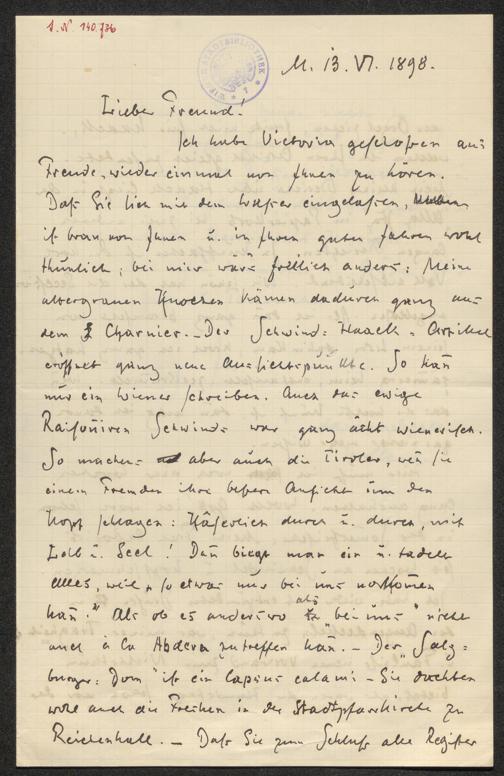 I. N 140.736
M. 13. VI. 1898.
Lieber Freund!
Ich habe Victoria geschossen aus
Freude, wieder einmal von Ihnen zu hören.
Daß Sie sich mit dem eingelassen,
ist brav von Ihnen u. in Ihren guten Jahren wohl
thunlich; bei mir wär's freilich anders: Meine
altersgrauen Knochen kämen dadurch ganz aus
dem Charnier. – Der Schwind-Haack-Artikel
eröffnet ganz neue Aussichtspunkte. So kan̄
nur ein Wiener schreiben. Auch das ewige
Raisoniren Schwinds war ganz ächt wienerisch.
So machens aber auch die Tiroler, wen̄ sie
einem Fremden ihre bessere Ansicht um den
Kopf schlagen: durch u. durch, mit
Leib u. Seel! Dan̄ biegt man ein u. tadelt
alles, weil so etwas nur bei uns vorkom̄en
kan̄." Als ob es anderswo als „bei uns" nicht
auch à la Abdera zutreffen kan̄. – Der „Salz=
burger-Dom" ist ein lapsus calami – Sie dachten
wohl auch die Fresken in der Stadtpfarrkirche zu
Reichenhall. – Daß Sie zum Schluß alle Register